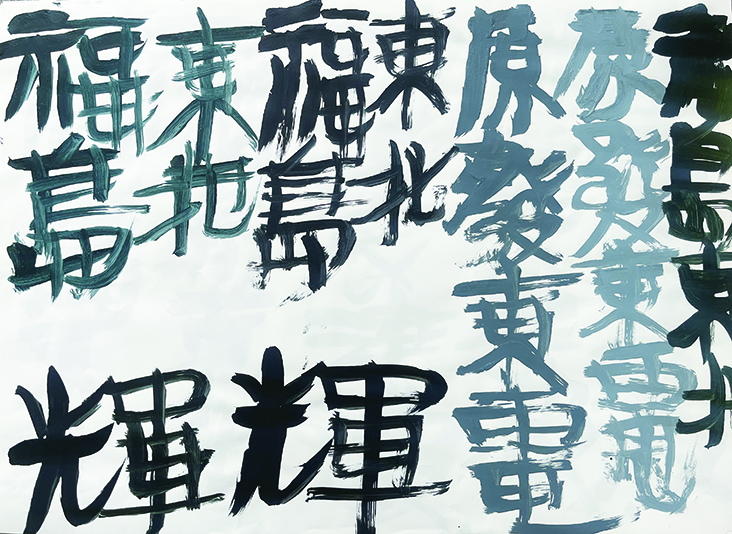 島東北
原發東電
原發東電
東北
福島
輝
東北
福島
輝